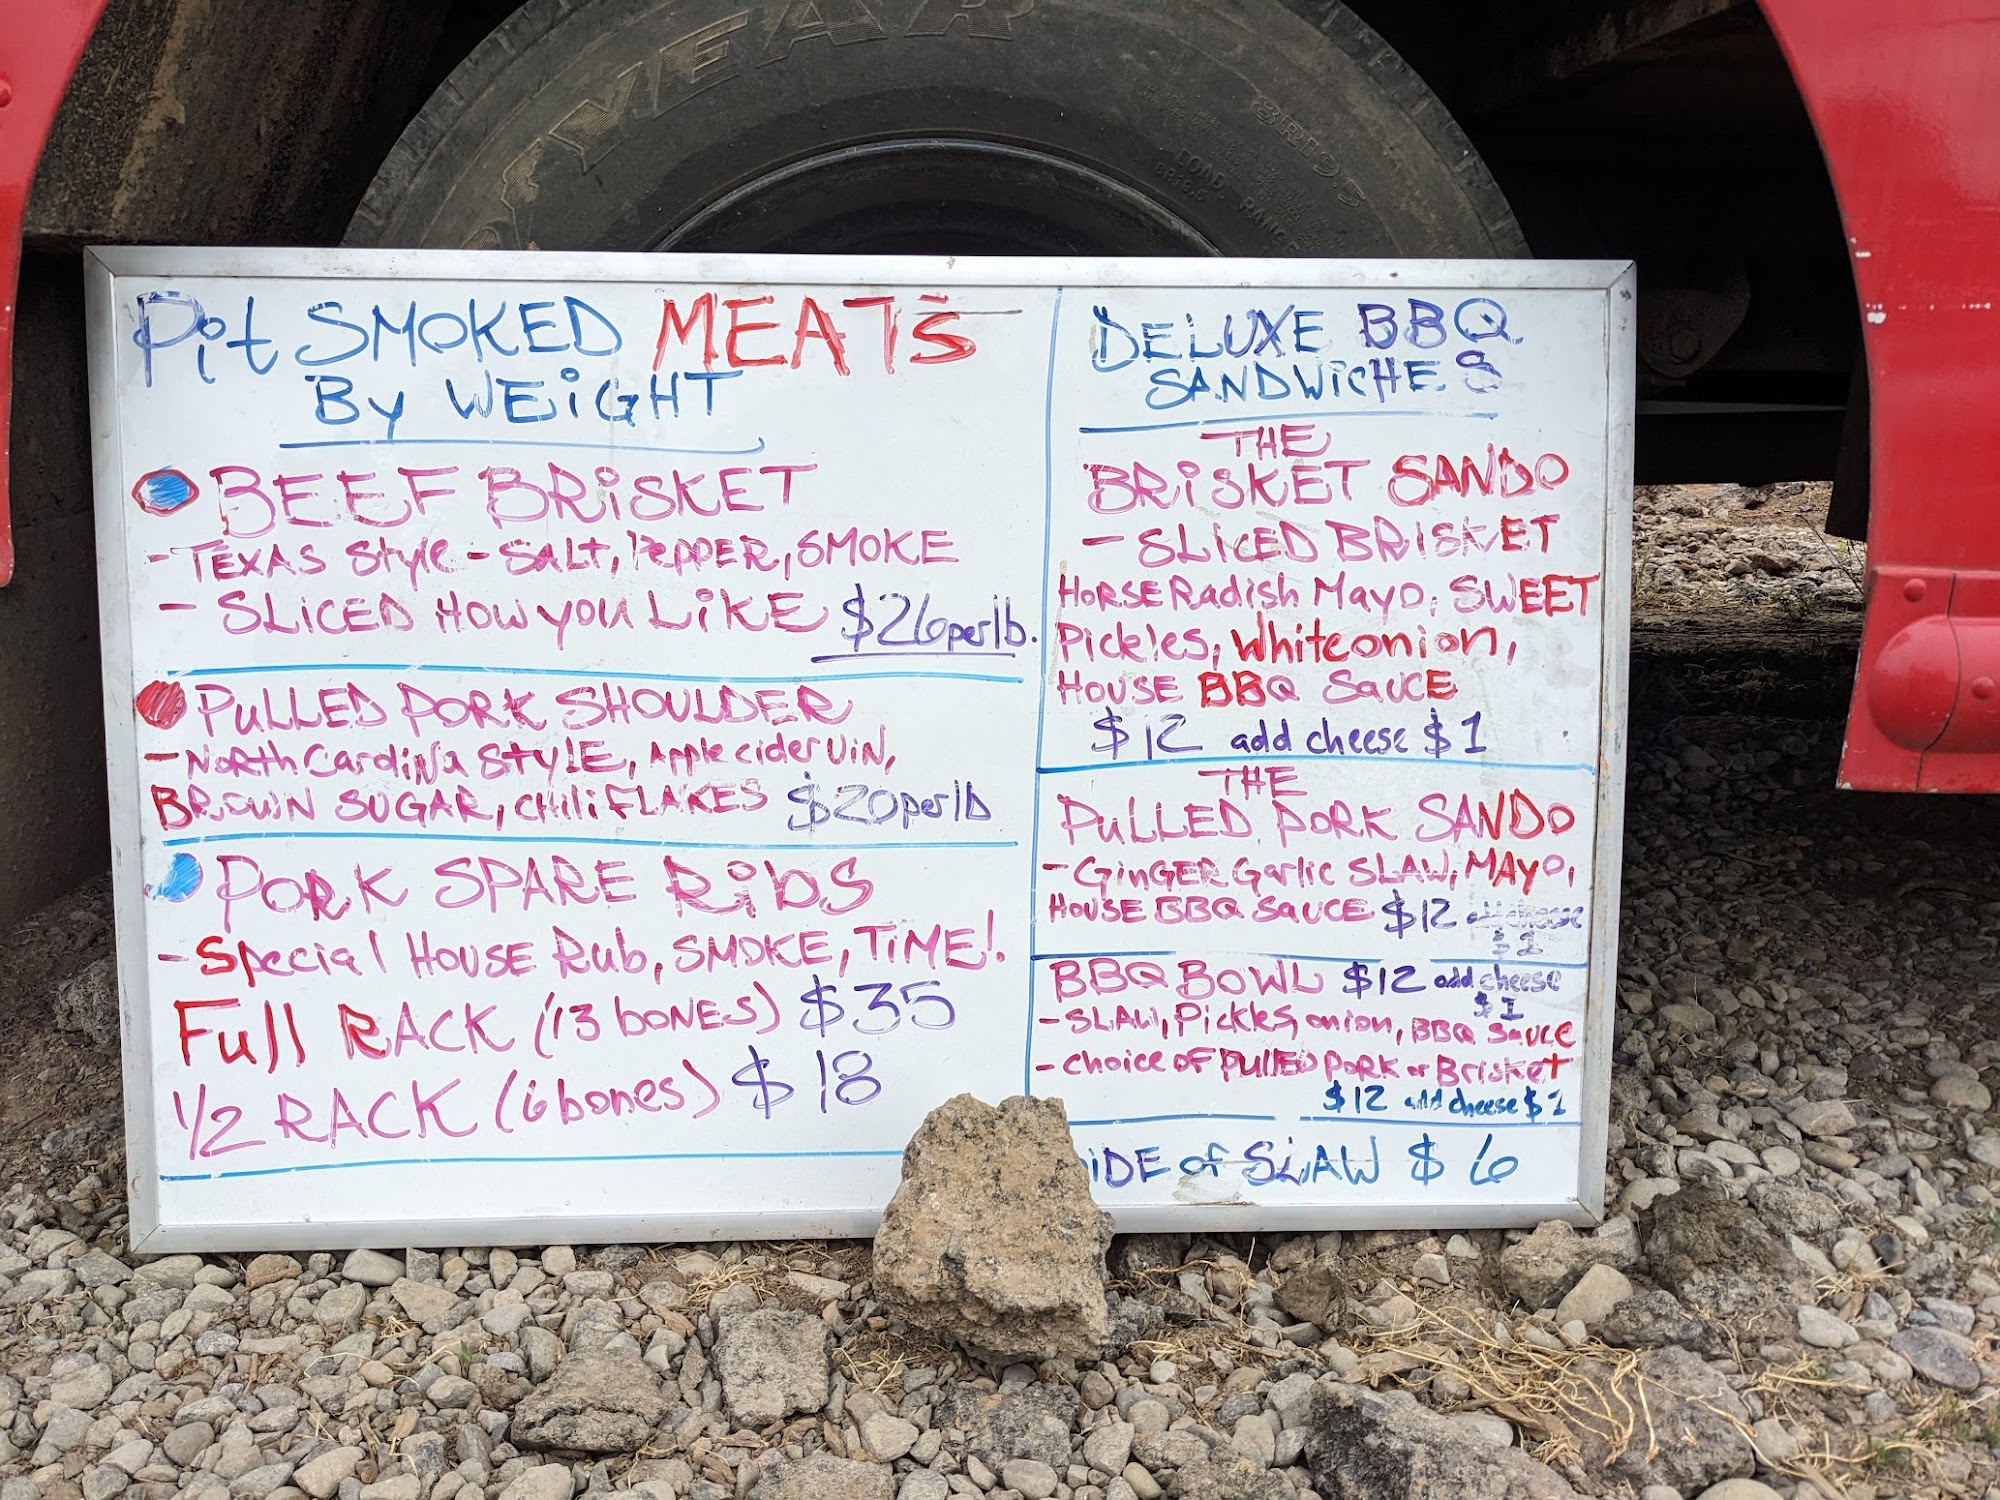 YEAR
8R19.5
LOAD RANGE
8R19.5
Pit SMOKED MEATS
By WEiGHT
BEEF BRiSKET
- TEXAS Style - Salt, PEPPER, SMOKE
- SLiCED HOW you LiKE $26 per lb.
PuLLED PORK SHOULDER
- NORTH Carolina STYLE, Apple cider Vin,
BROWN SUGAR, CHiLi FLAKES $20 per lb
PORK SPARE Ribs
- Special HOUSE Rub, SMOKE, TiME!
Full RACK (13 bONES) $35
1/2 RACK (6 bones) $18
DELUXE BBQ
SANDWicHES
THE
BRiSKET SANDO
- SLiCED BRISKET
HORSERadish Mayo, SWEET
Pickles, White onion,
HOUSE BBQ SauCE
$12 add cheese $1
THE
PuLLED PORK SANDO
- GiNGER Garlic SLAW, MAYO,
HOUSE BBQ SauCE $12 add cheese
$1
BBQ BOWL $12 add cheese
$1
- SLAW, Pickles, onion, BBQ Sauce
- choice OF PullED PORK or Brisket
$12 add cheese $1
iDE of SLAW $6